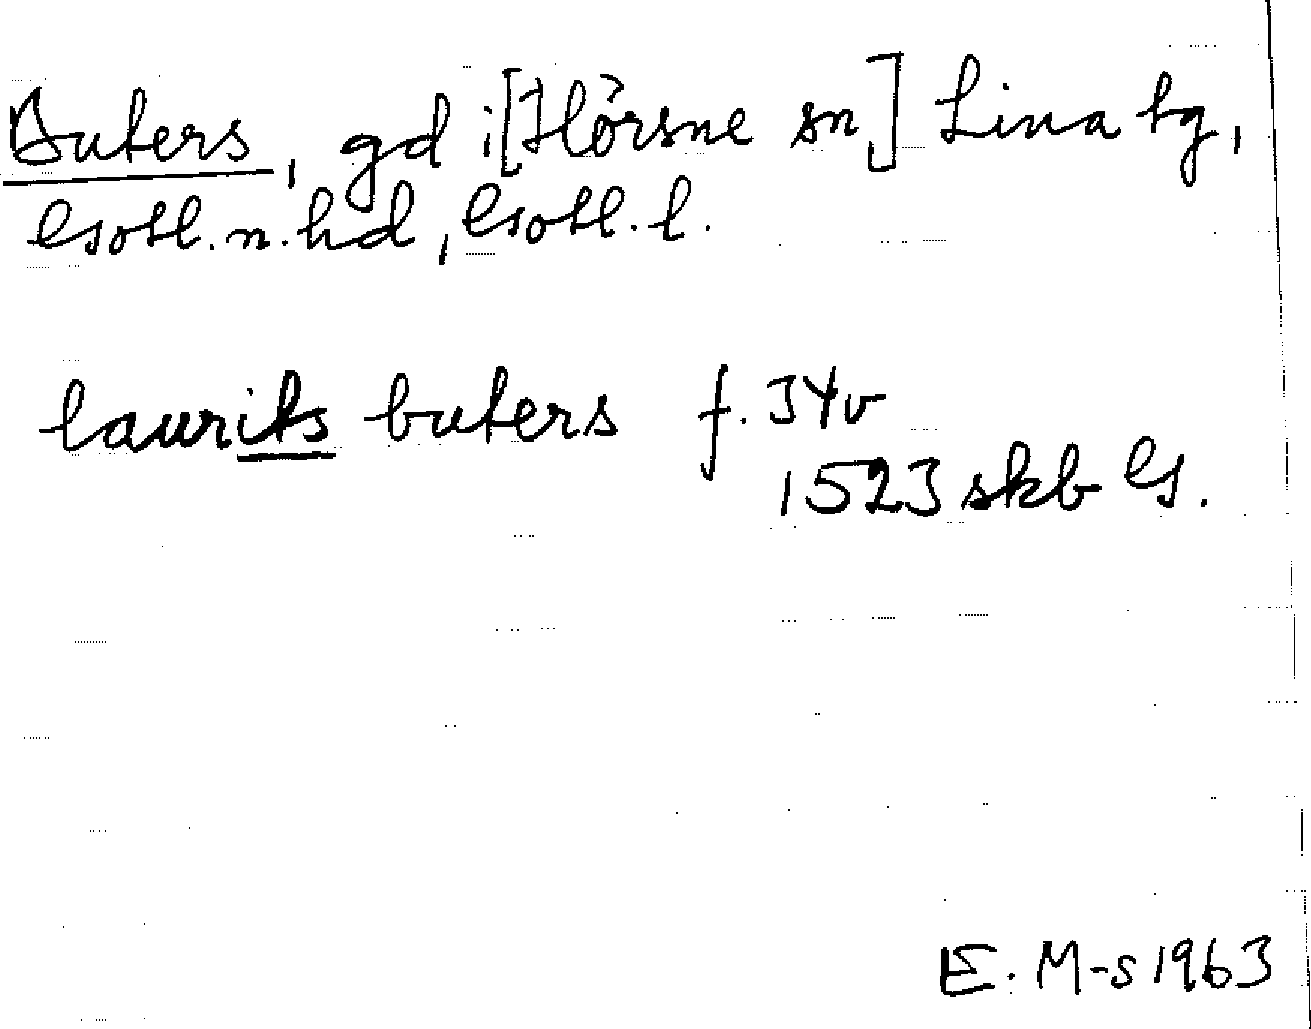 Buters, gd i [Hörsne sn] Lina tg,
Gotl. n. hd, Gotl. l.
laurits buters f. 34v
1523 skb G.
E. M-s 1963